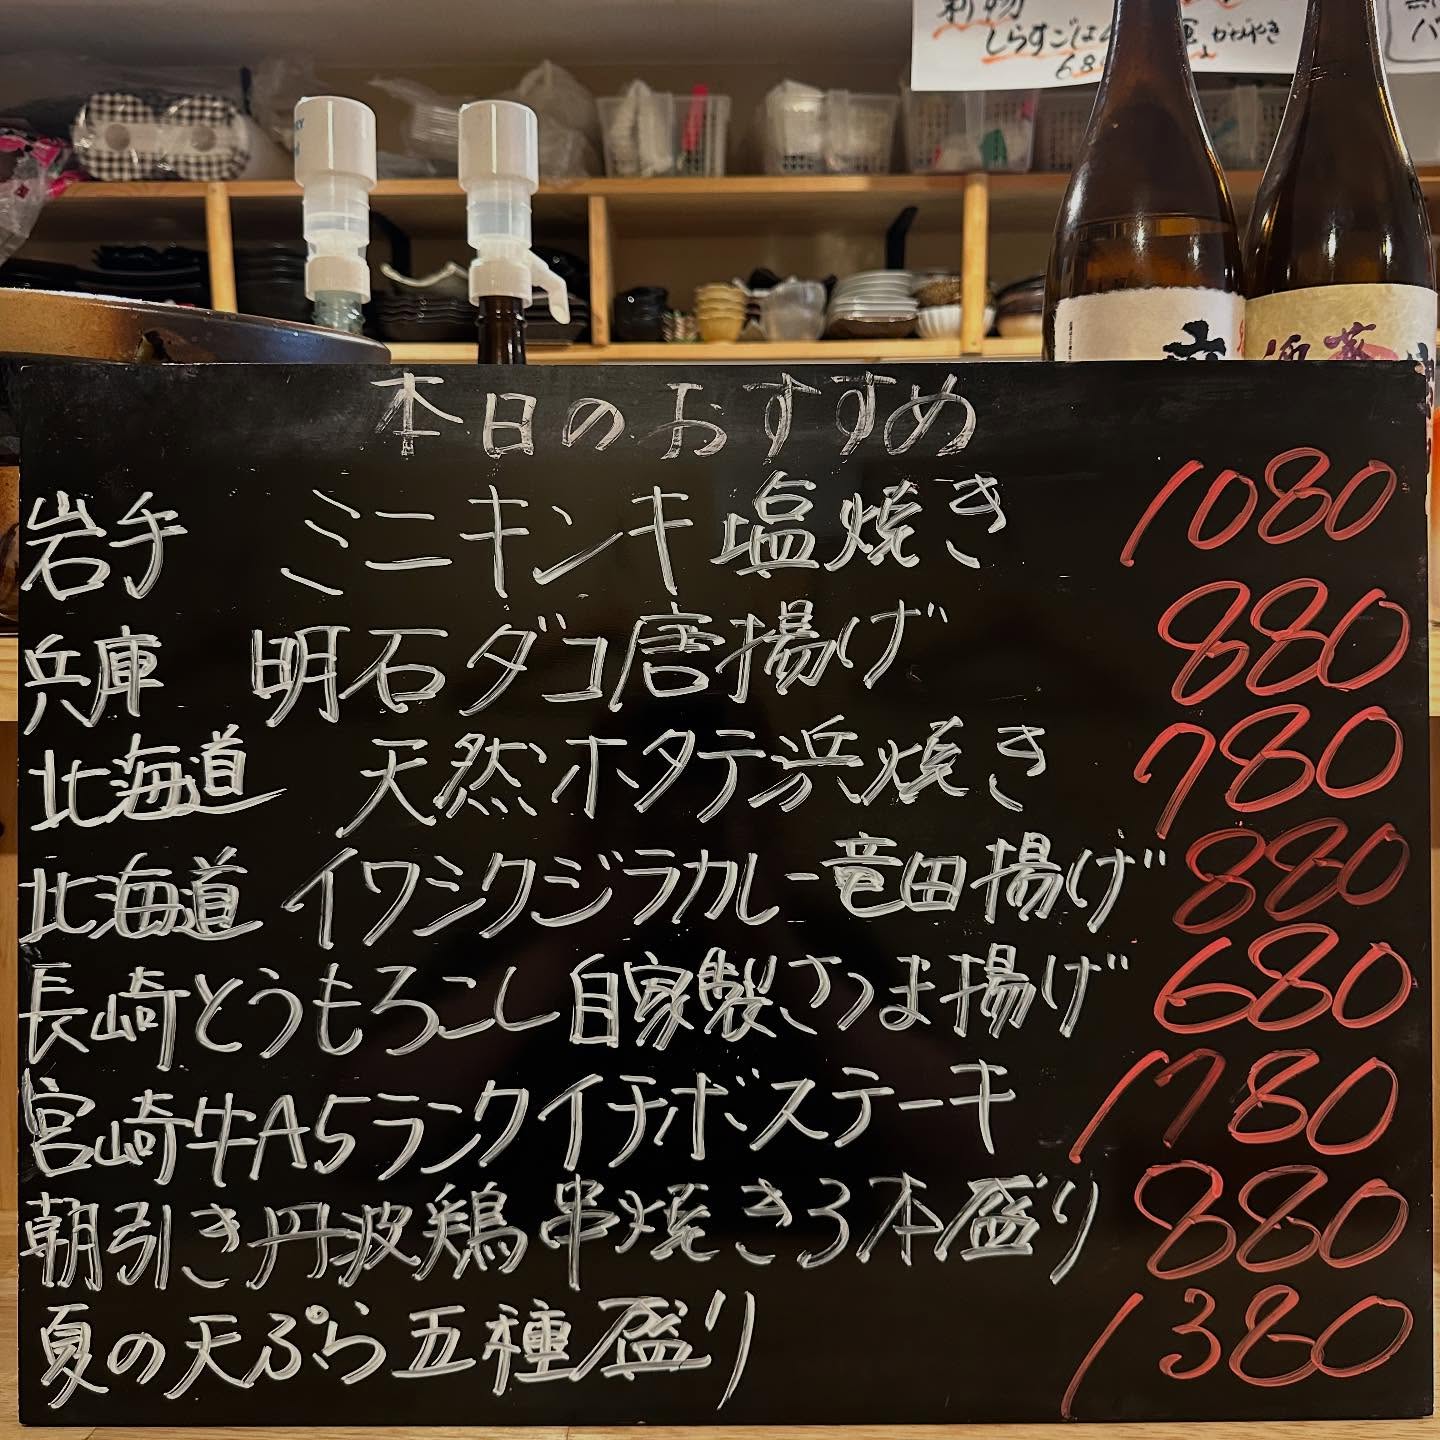 しらすごはん
680
本日のおすすめ
岩手 ミニキンキ塩焼き 1080
兵庫 明石ダコ唐揚げ 880
北海道 天然ホタテ浜焼き 780
北海道 イワシクジラカレー竜田揚げ 880
長崎とうもろこし自家製さつま揚げ 680
宮崎牛A5ランクイチボステーキ 1780
朝引き丹波鶏串焼き3本盛り 880
夏の天ぷら五種盛り 1380